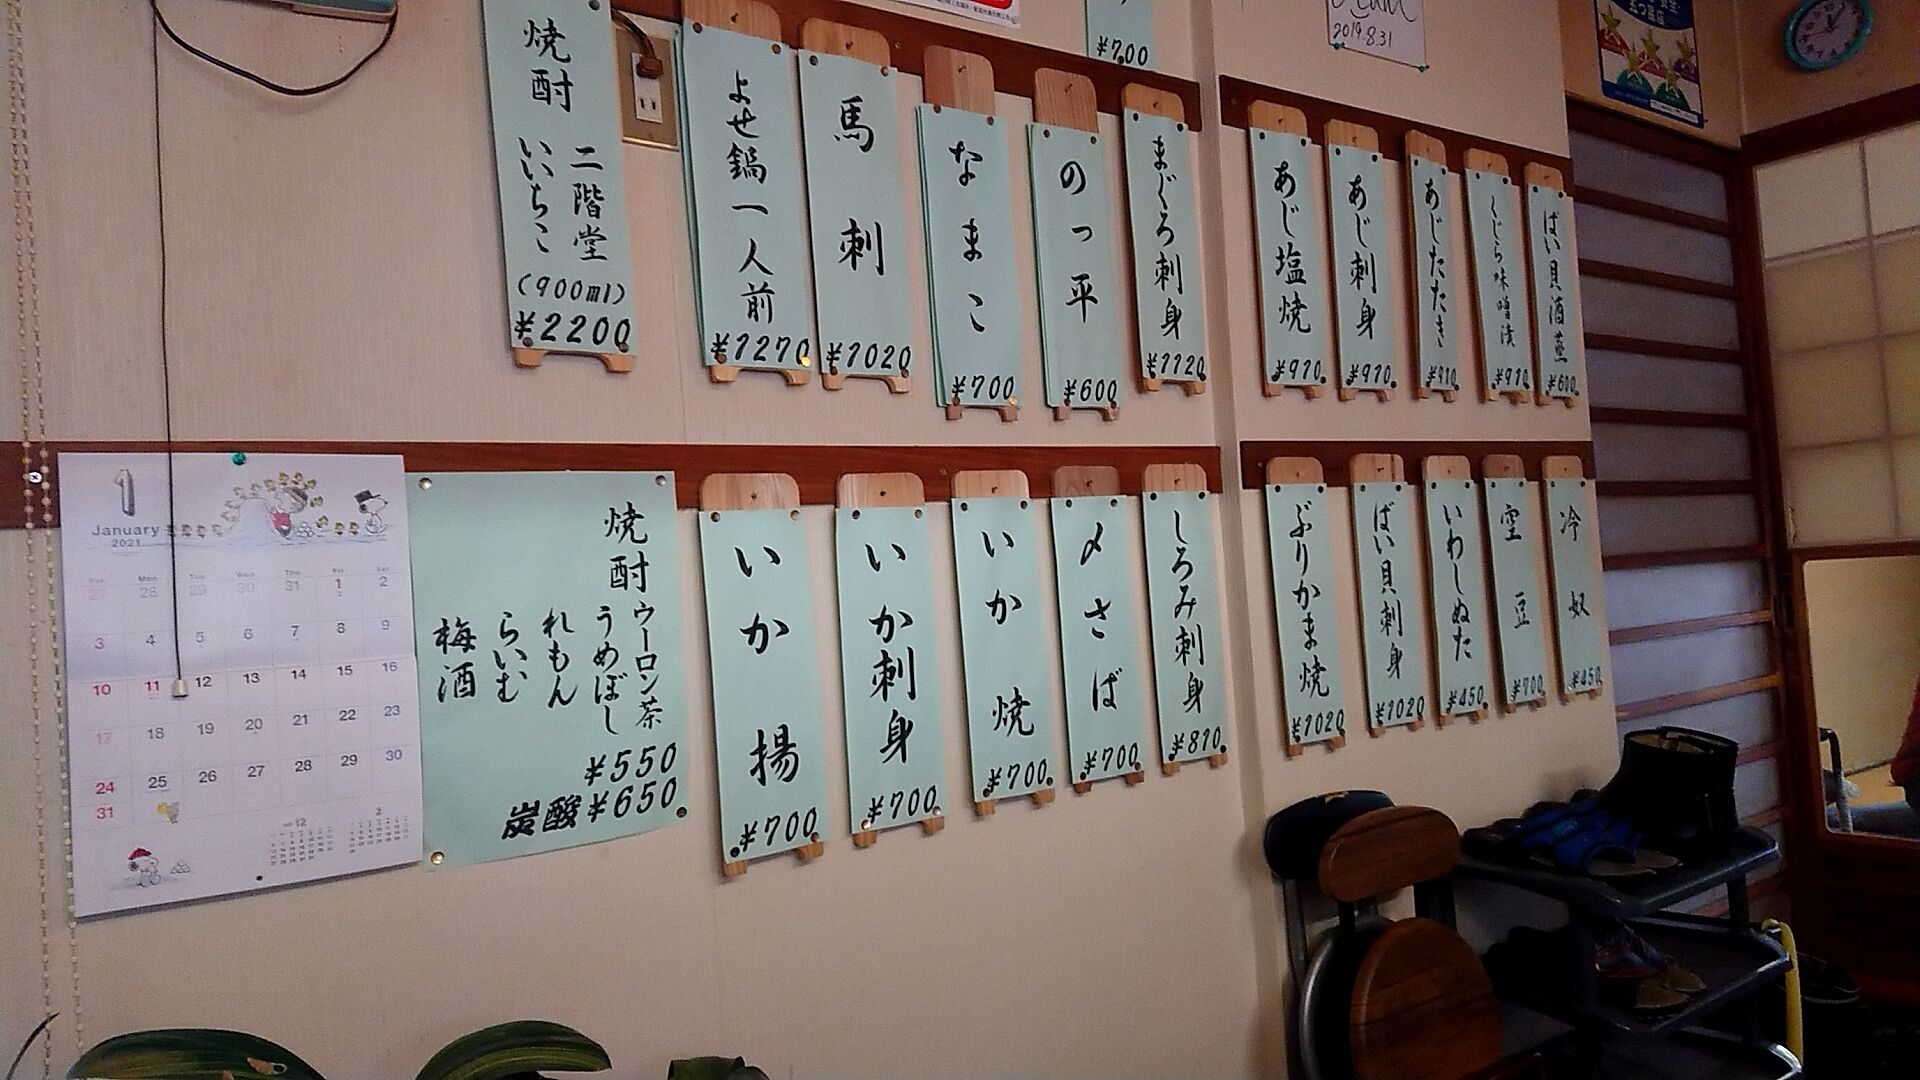 焼酎
二階堂
いいちこ
(900ml)
¥2200
よせ鍋一人前
¥1270
馬刺
¥1020
なまこ
¥700
のっ平
¥600
まぐろ刺身
¥1120
¥700
2019.8.31
あじ塩焼
¥910
あじ刺身
¥910
あじたたき
¥910
くじら味噌漬
¥910
ばい貝酒蒸
¥600
1
January
2021
Sun Mon Tue Wed Thu Fri Sat
27 28 29 30 31 1 2
3 4 5 6 7 8 9
10 11 12 13 14 15 16
17 18 19 20 21 22 23
24 25 26 27 28 29 30
31
焼酎
ウーロン茶
うめぼし
れもん
らいむ
梅酒
¥550
炭酸¥650
いか揚
¥700
いか刺身
¥700
いか焼
¥700
〆さば
¥700
しろみ刺身
¥810
ぶりかま焼
¥1020
ばい貝刺身
¥1020
いわしぬた
¥450
空豆
¥700
冷奴
¥450